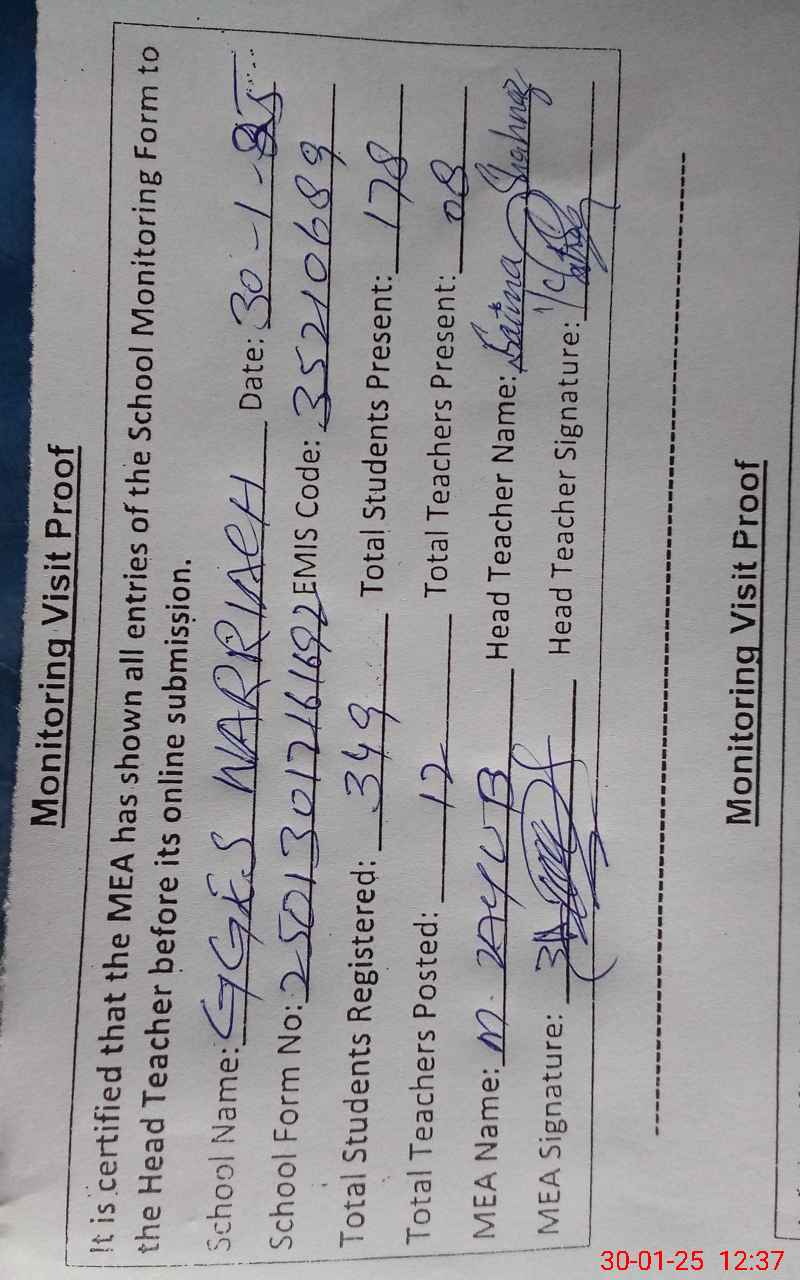 Monitoring Visit Proof
It is certified that the MEA has shown all entries of the School Monitoring Form to
the Head Teacher before its online submission.
School Name: GGES WARRIACH Date: 30-1-25
School Form No: 25013012161692 EMIS Code: 35210689
Total Students Registered: 349 Total Students Present: 178
Total Teachers Posted: 12 Total Teachers Present: 08
MEA Name: M. AYUB Head Teacher Name: Saima Shahnaz
MEA Signature: Head Teacher Signature:
Monitoring Visit Proof
30-01-25 12:37